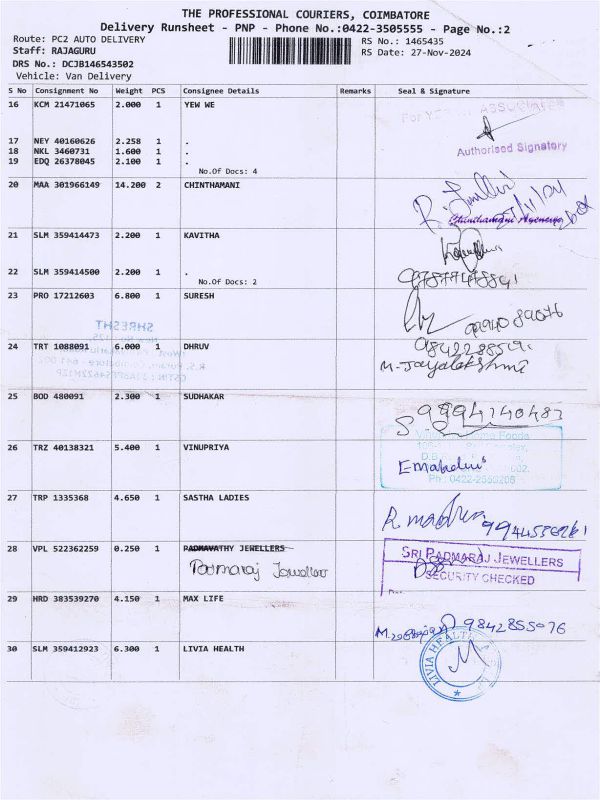 THE PROFESSIONAL COURIERS, COIMBATORE
Delivery Runsheet - PNP - Phone No.:0422-3505555 - Page No.:2
Route: PC2 AUTO DELIVERY
RS No.: 1465435
Staff: RAJAGURU
RS Date: 27-Nov-2024
DRS No.: DCJB146543502
Vehicle: Van Delivery
S No Consignment No Weight PCS Consignee Details Remarks Seal & Signature
16 KCM 21471065 2.000 1 YEW WE
ASSOCIATES
Authorised Signatory
17 NEY 40160626 2.258 1 .
18 NKL 3460731 1.600 1 .
19 EDQ 26378045 2.100 1 .
No.Of Docs: 4
20 MAA 301966149 14.200 2 CHINTHAMANI
Chinthamani Agencies
21 SLM 359414473 2.200 1 KAVITHA
22 SLM 359414500 2.200 1 .
No.Of Docs: 2
23 PRO 17212603 6.800 1 SURESH
SHRESHT
24 TRT 1088091 6.000 1 DHRUV
M. Jayalakshmi
25 BOD 480091 2.300 1 SUDHAKAR
26 TRZ 40138321 5.400 1 VINUPRIYA
Foods
Ph: 0422-2550206
27 TRP 1335368 4.650 1 SASTHA LADIES
28 VPL 522362259 0.250 1 PADMAVATHY JEWELLERS
Padmaraj Jewellers
SRI PADMARAJ JEWELLERS
SECURITY CHECKED
29 HRD 383539270 4.150 1 MAX LIFE
9842855076
30 SLM 359412923 6.300 1 LIVIA HEALTH
LIVIA HEALTH